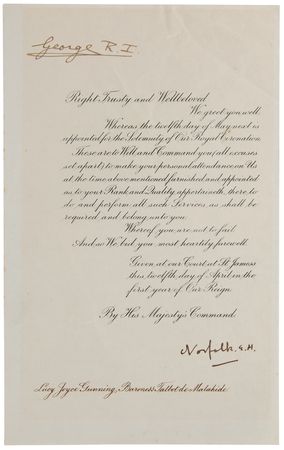 George R.I.
Right Trusty and Wellbeloved
We greet you well.
Whereas the twelfth day of May next is
appointed for the Solemnity of Our Royal Coronation
These are to Will and Command you (all excuses
set apart) to make your personal attendance on Us
at the time above mentioned furnished and appointed
as to your Rank and Quality appertaineth, there to
do and perform all such Services as shall be
required and belong unto you.
Whereof you are not to fail
And so We bid you most heartily farewell
Given at our Court, at St. James's
this twelfth day of April in the
first year of Our Reign.
By His Majesty's Command
Norfolk. E.M.
Lucy Joyce Gunning, Baroness Talbot de Malahide